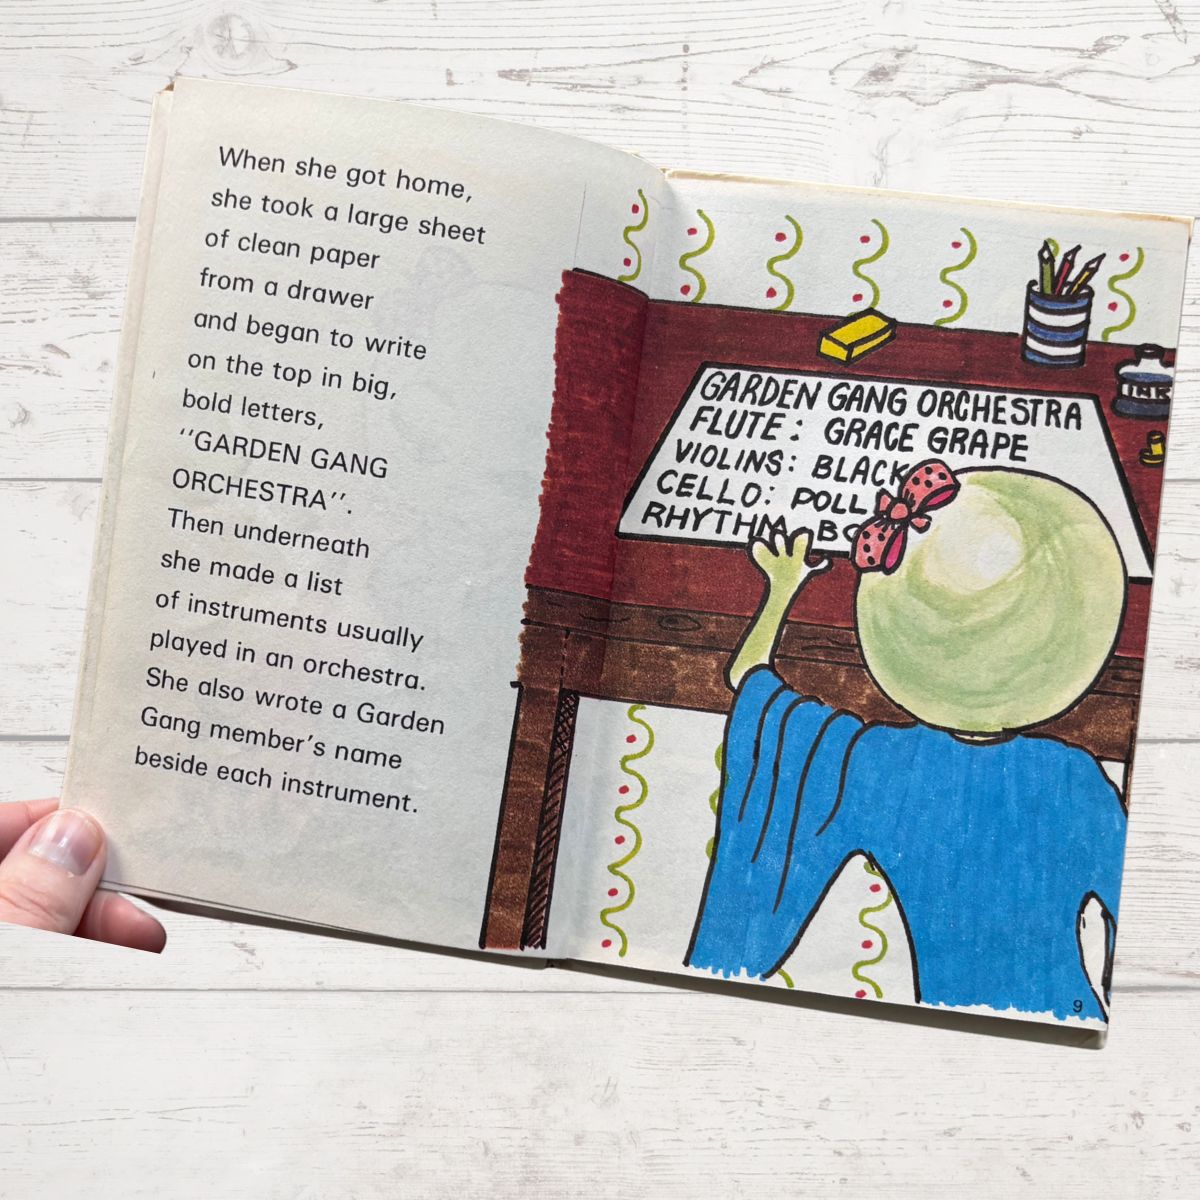 When she got home,
she took a large sheet
of clean paper
from a drawer
and began to write
on the top in big,
bold letters,
‘‘GARDEN GANG
ORCHESTRA’’.
Then underneath
she made a list
of instruments usually
played in an orchestra.
She also wrote a Garden
Gang member’s name
beside each instrument.
GARDEN GANG ORCHESTRA
FLUTE: GRACE GRAPE
VIOLINS: BLACK
CELLO: POLL
RHYTHM
INK
9